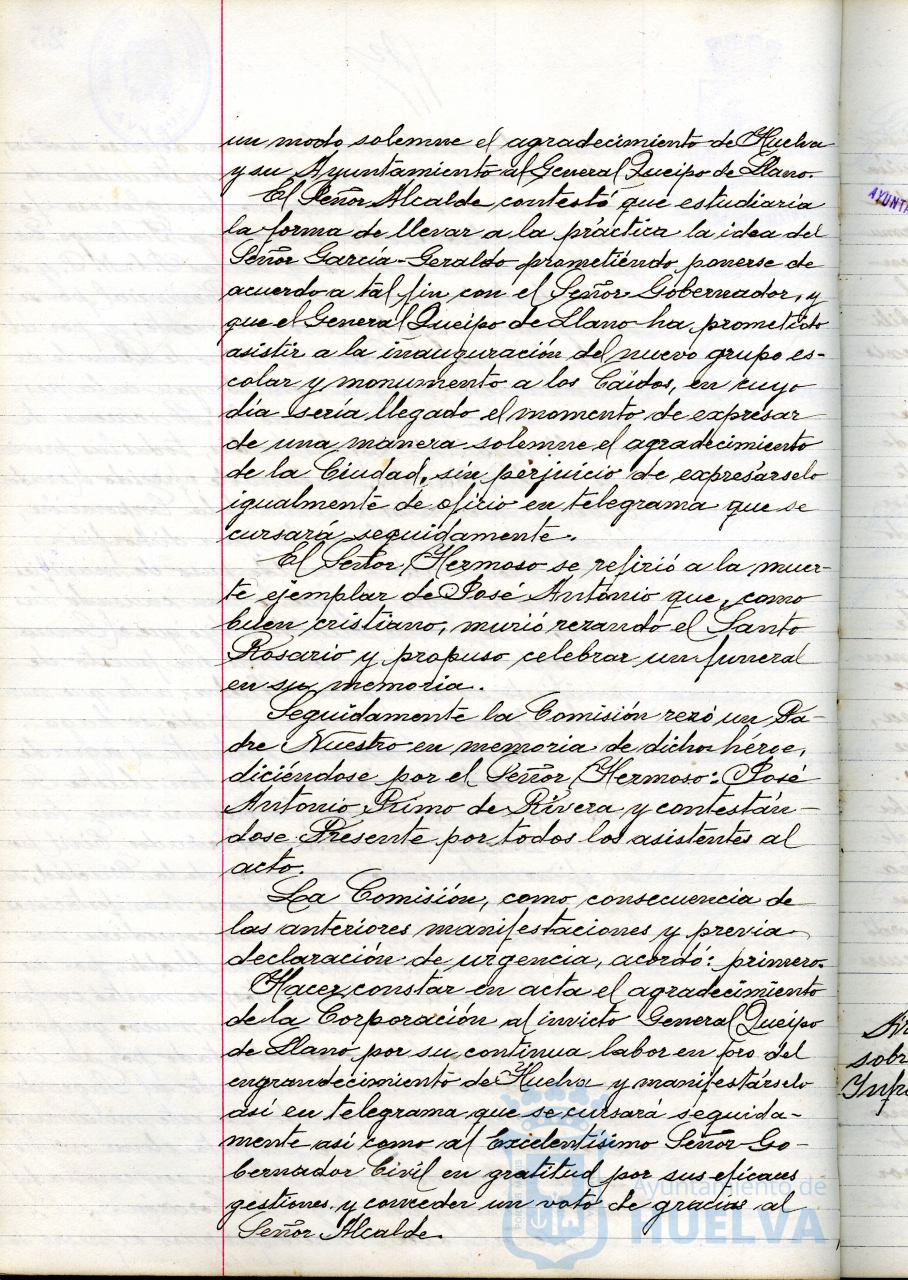 un modo solemne el agradecimiento de Huelva
y su Ayuntamiento al General Queipo de Llano.
El Señor Alcalde contestó que estudiaria
la forma de llevar a la práctica la idea del
Señor García-Geraldo prometiéndo ponerse de
acuerdo a tal fin con el Señor Gobernador, y
que el General Queipo de Llano ha prometido
asistir a la inauguración del nuevo grupo es-
colar y monumento a los Caidos, en cuyo
día sería llegado el momento de expresar
de una manera solemne el agradecimiento
de la Ciudad, sin perjuicio de expresárselo
igualmente de oficio en telegrama que se
cursará seguidamente.
El Señor Hermoso se refirió a la muer-
te ejemplar de José António que, como
buen cristiano, murió rezando el Santo
Rosario y propuso celebrar un funeral
en su memoria.
Seguidamente la Comisión rezó un Pa-
dre Nuestro en memoria de dicho héroe,
diciéndose por el Señor Hermoso: José
Antonio Primo de Rivera y contestán-
dose Presente por todos los asistentes al
acto.
La Comisión, como consecuencia de
las anteriores manifestaciones y previa
declaración de urgencia, acordó: primero.
Hacer constar en acta el agradecimiento
de la Corporación al invicto General Queipo
de Llano por su continua labor en pro del
engrandecimiento de Huelva y manifestárselo
así en telegrama que se cursará seguida-
mente así como al Excelentísimo Señor Go-
bernador Civil en gratitud por sus eficaces
gestiones y conceder un voto de gracias al
Señor Alcalde.
AYUNTA
sobr
Ayuntamiento de
HUELVA